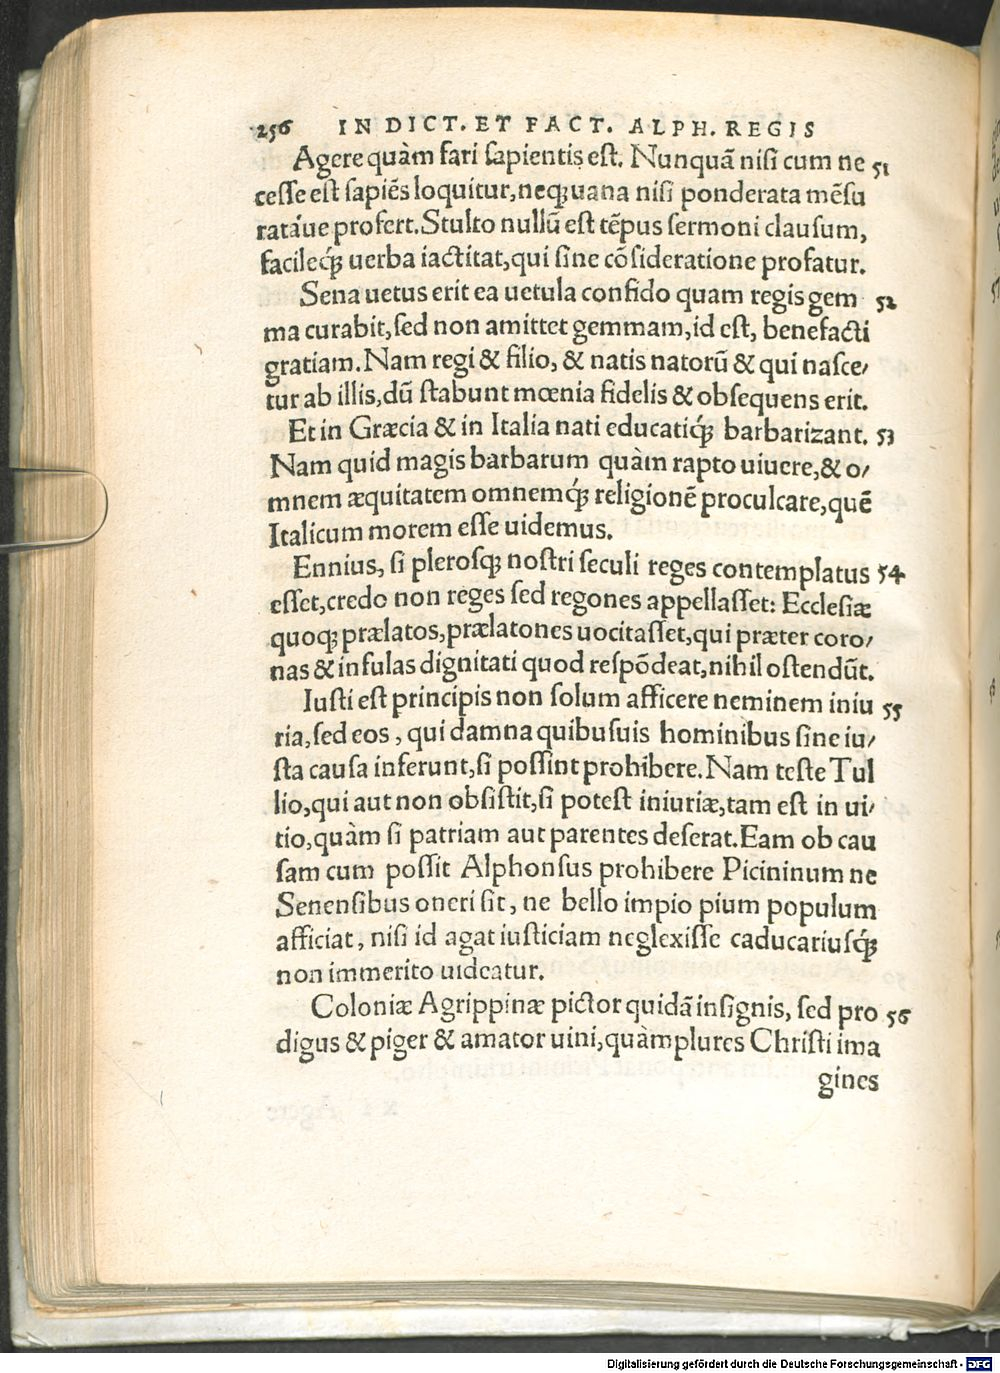 256 IN DICT. ET FACT. ALPH. REGIS
Agere quàm fari sapientis est. Nunquā nisi cum ne 51
cesse est sapiēs loquitur, neqꝫ uana nisi ponderata mēsu
rata'ue profert. Stulto nullū est tēpus sermoni clausum,
facileq́ꝫ uerba iactitat, qui sine cōsideratione profatur.
Sena uetus erit ea uetula confido quam regis gem 52
ma curabit, sed non amittet gemmam, id est, benefacti
gratiam. Nam regi & filio, & natis natorū & qui nasce/
tur ab illis, dū stabunt mœnia fidelis & obsequens erit.
Et in Græcia & in Italia nati educatiq́ꝫ barbarizant. 53
Nam quid magis barbarum quàm rapto uiuere, & o/
mnem æquitatem omnemq́ꝫ religionē proculcare, quē
Italicum morem esse uidemus.
Ennius, si plerosqꝫ nostri seculi reges contemplatus 54
esset, credo non reges sed regones appellasset: Ecclesiæ
quoqꝫ prælatos, prælatones uocitasset, qui præter coro/
nas & infulas dignitati quod respōdeat, nihil ostendūt.
Iusti est principis non solum afficere neminem iniu 55
ria, sed eos, qui damna quibusuis hominibus sine iu/
sta causa inferunt, si possint prohibere. Nam teste Tul
lio, qui aut non obsistit, si potest iniuriæ, tam est in ui/
tio, quàm si patriam aut parentes deserat. Eam ob cau
sam cum possit Alphonsus prohibere Picininum ne
Senensibus oneri sit, ne bello impio pium populum
afficiat, nisi id agat iusticiam neglexisse caducariusq́ꝫ
non immerito uideatur.
Coloniæ Agrippinæ pictor quidā insignis, sed pro 56
digus & piger & amator uini, quàmplures Christi ima
gines
Digitalisierung gefördert durch die Deutsche Forschungsgemeinschaft - DFG